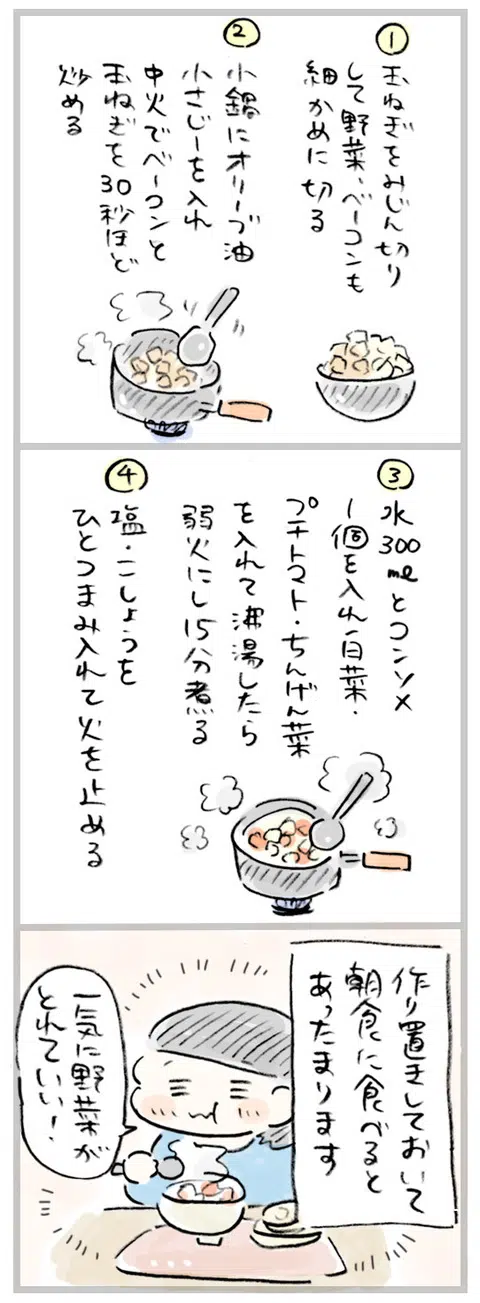 ①
玉ねぎをみじん切り
して野菜、ベーコンも
細かめに切る
②
小鍋にオリーブ油
小さじ1を入れ
中火でベーコンと
玉ねぎを30秒ほど
炒める
③
水300mlとコンソメ
1個を入れ白菜・
プチトマト・ちんげん菜
を入れて沸湯したら
弱火にし15分煮る
④
塩・こしょうを
ひとつまみ入れて火を止める
作り置きしておいて
朝食に食べると
あったまります
一気に野菜が
とれていい!